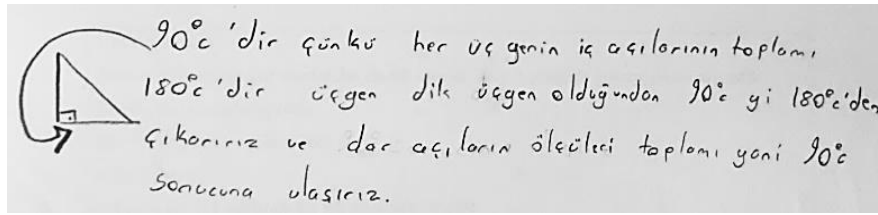 90°c 'dir çünkü her üç genin iç açılarının toplamı
180°c 'dir üçgen dik üçgen olduğundan 90°c yi 180°c'den
çıkarırız ve dar açıların ölçüleri toplamı yani 90°c
sonucuna ulaşırız.